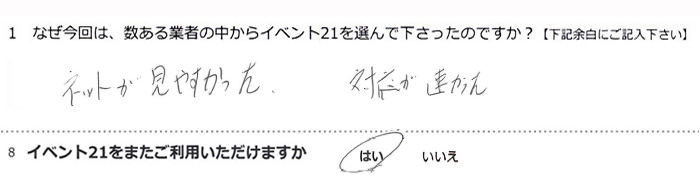 1 なぜ今回は、数ある業者の中からイベント21を選んで下さったのですか？【下記余白にご記入下さい】
ネットが見やすかった. 対応が速かった
8 イベント21をまたご利用いただけますか はい いいえ